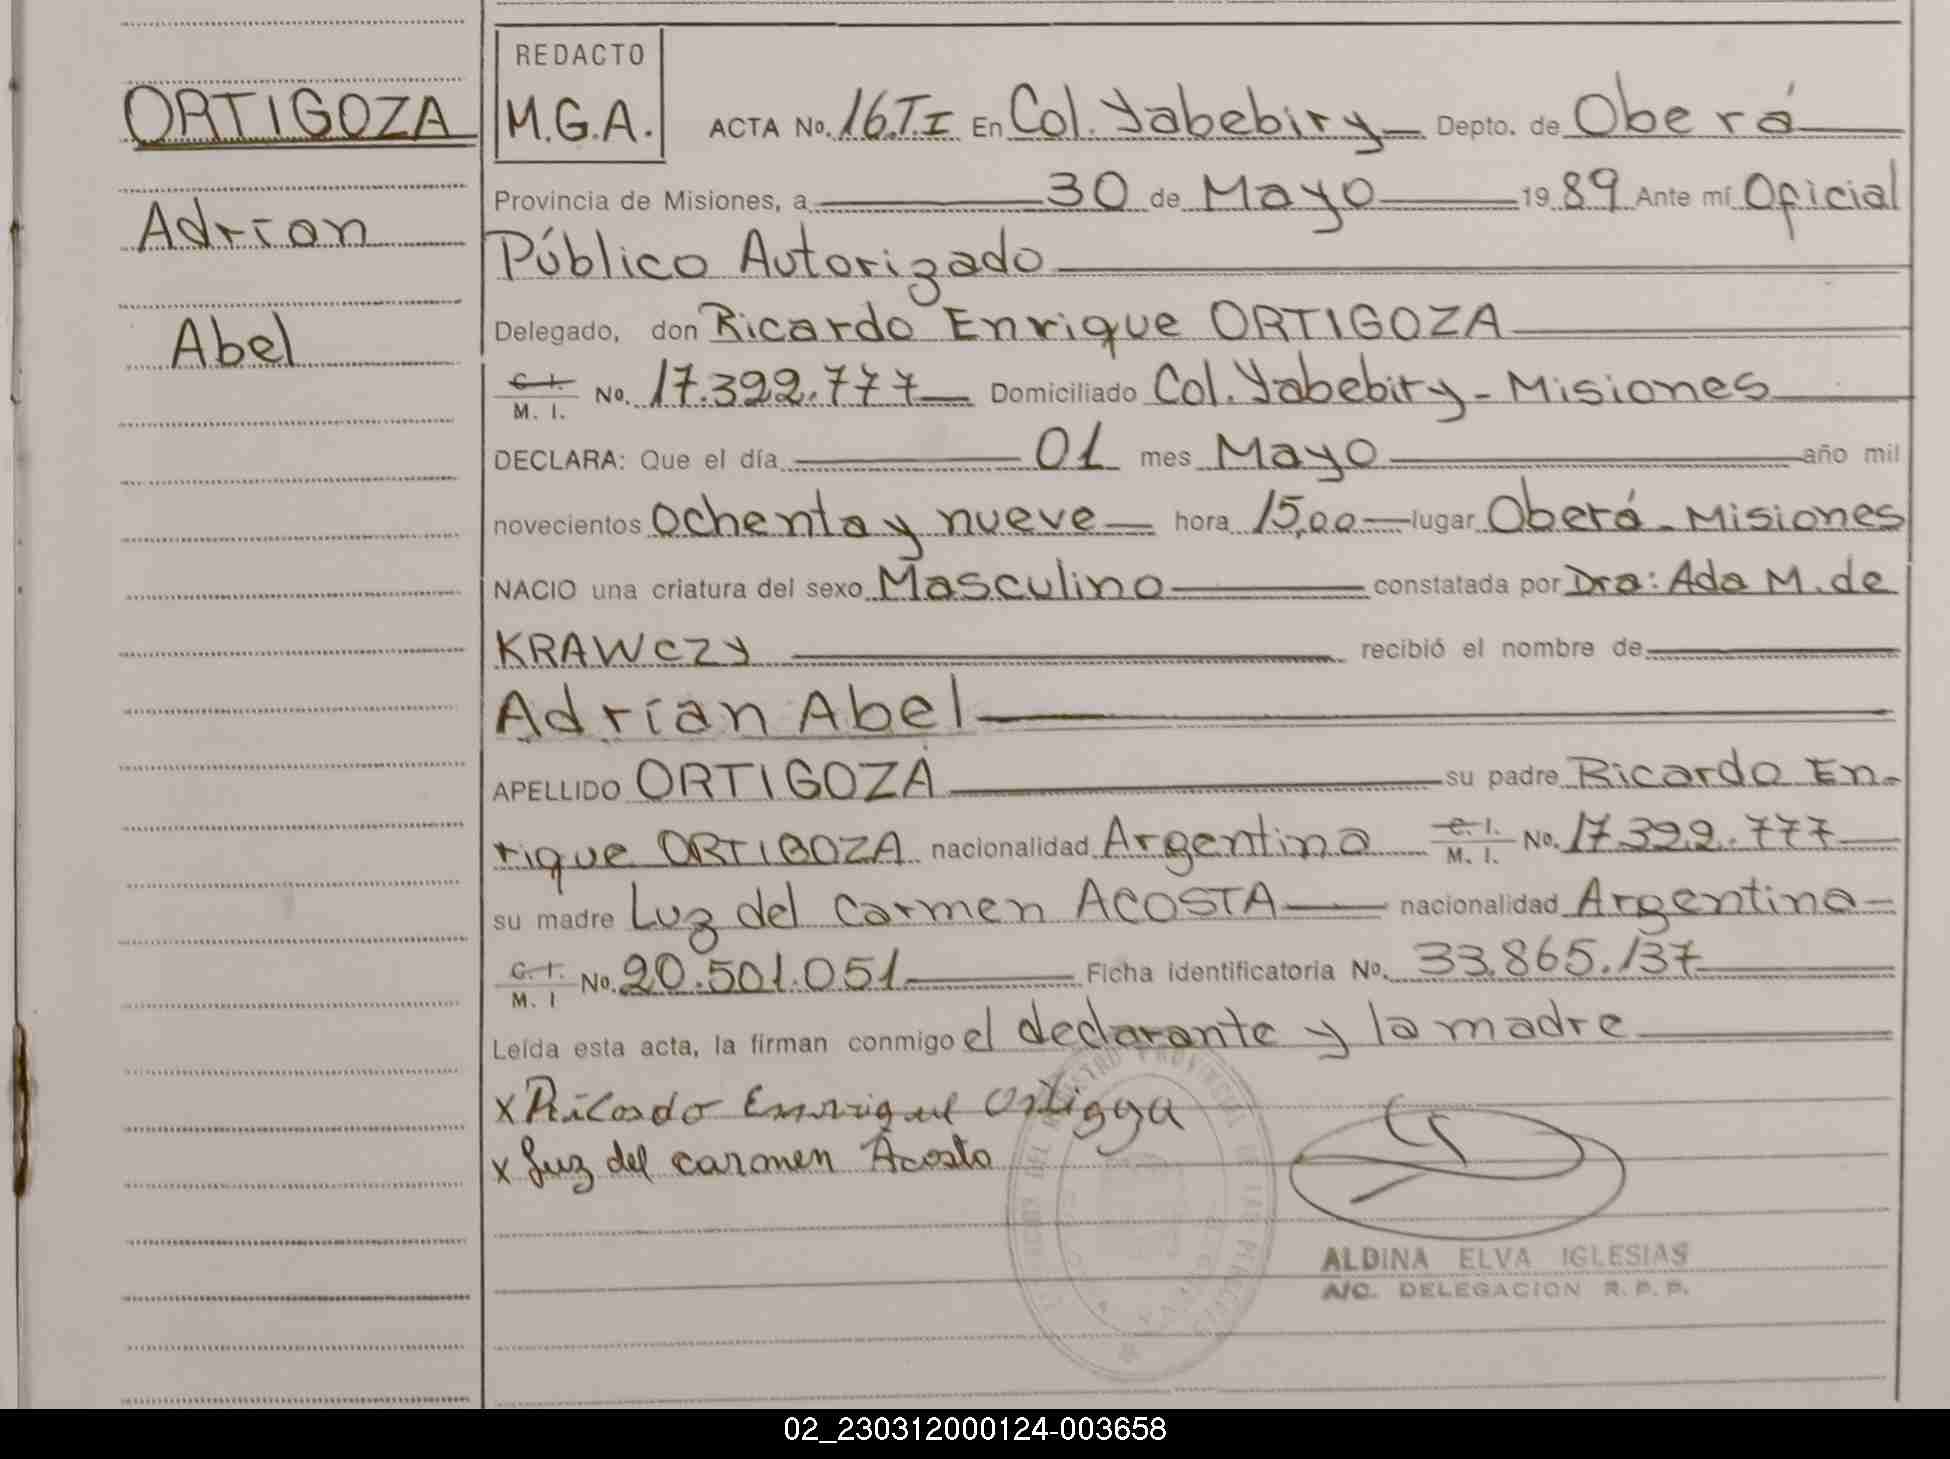 ORTIGOZA
Adrian
Abel
REDACTO
M.G.A.
ACTA No. 16.T.I En Col. Yabebiry Depto. de Oberá
Provincia de Misiones, a 30 de Mayo 1989 Ante mí Oficial
Público Autorizado
Delegado, don Ricardo Enrique ORTIGOZA
C. I. M. I. No. 17.322.777 Domiciliado Col. Yabebiry - Misiones
DECLARA: Que el día 01 mes Mayo año mil
novecientos ochenta y nueve hora 15,00 lugar Oberá - Misiones
NACIO una criatura del sexo Masculino constatada por Dra: Ada M. de
KRAWCZY recibió el nombre de
Adrían Abel
APELLIDO ORTIGOZA su padre Ricardo En-
rique ORTIGOZA nacionalidad Argentina C. I. M. I. No. 17.322.777
su madre Luz del Carmen ACOSTA nacionalidad Argentina
C. I. M. I No. 20.501.051 Ficha identificatoria No. 33.865.137
Leída esta acta, la firman conmigo el declarante y la madre
x Ricardo Enrrique Ortigoza
x Luz del carmen Acosta
ALDINA ELVA IGLESIAS
A/C. DELEGACION R. P. P.
02_230312000124-003658